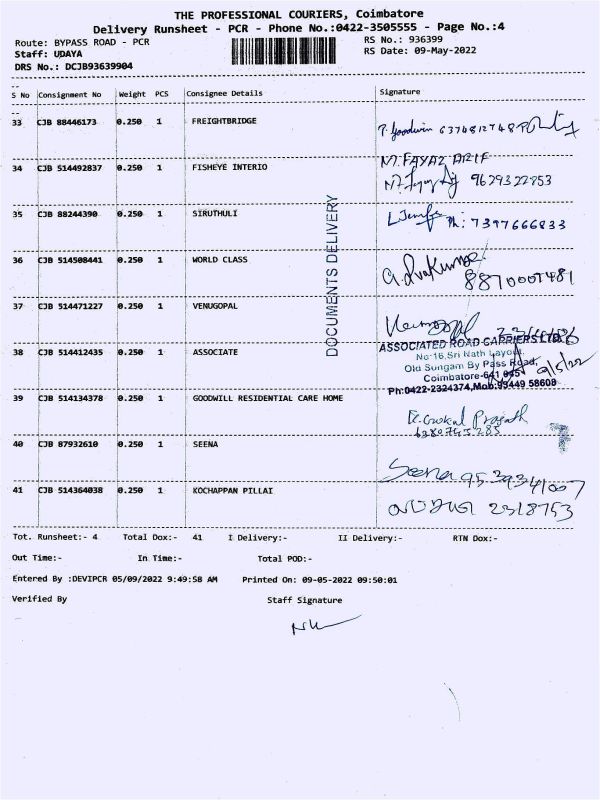 THE PROFESSIONAL COURIERS, Coimbatore
Delivery Runsheet - PCR - Phone No.:0422-3505555 - Page No.:4
Route: BYPASS ROAD - PCR RS No.: 936399
Staff: UDAYA RS Date: 09-May-2022
DRS No.: DCJB93639904
S No Consignment No Weight PCS Consignee Details Signature
33 CJB 88446173 0.250 1 FREIGHTBRIDGE
34 CJB 514492837 0.250 1 FISHEYE INTERIO M.FAYAZ ARIF
9629322853
35 CJB 88244390 0.250 1 SIRUTHULI Ph: 7397666833
36 CJB 514508441 0.250 1 WORLD CLASS
8870007481
37 CJB 514471227 0.250 1 VENUGOPAL Venugopal
DOCUMENTS DELIVERY
38 CJB 514412435 0.250 1 ASSOCIATE ASSOCIATED ROAD CARRIERS LTD.
No:16,Sri Nath Layout,
Old Sungam By Pass Road,
Coimbatore-641 045 9/5/22
Ph:0422-2324374,Mob:93449 58608
39 CJB 514134378 0.250 1 GOODWILL RESIDENTIAL CARE HOME
40 CJB 87932610 0.250 1 SEENA Seena
41 CJB 514364038 0.250 1 KOCHAPPAN PILLAI 2318753
Tot. Runsheet:- 4 Total Dox:- 41 I Delivery:- II Delivery:- RTN Dox:-
Out Time:- In Time:- Total POD:-
Entered By :DEVIPCR 05/09/2022 9:49:58 AM Printed On: 09-05-2022 09:50:01
Verified By Staff Signature